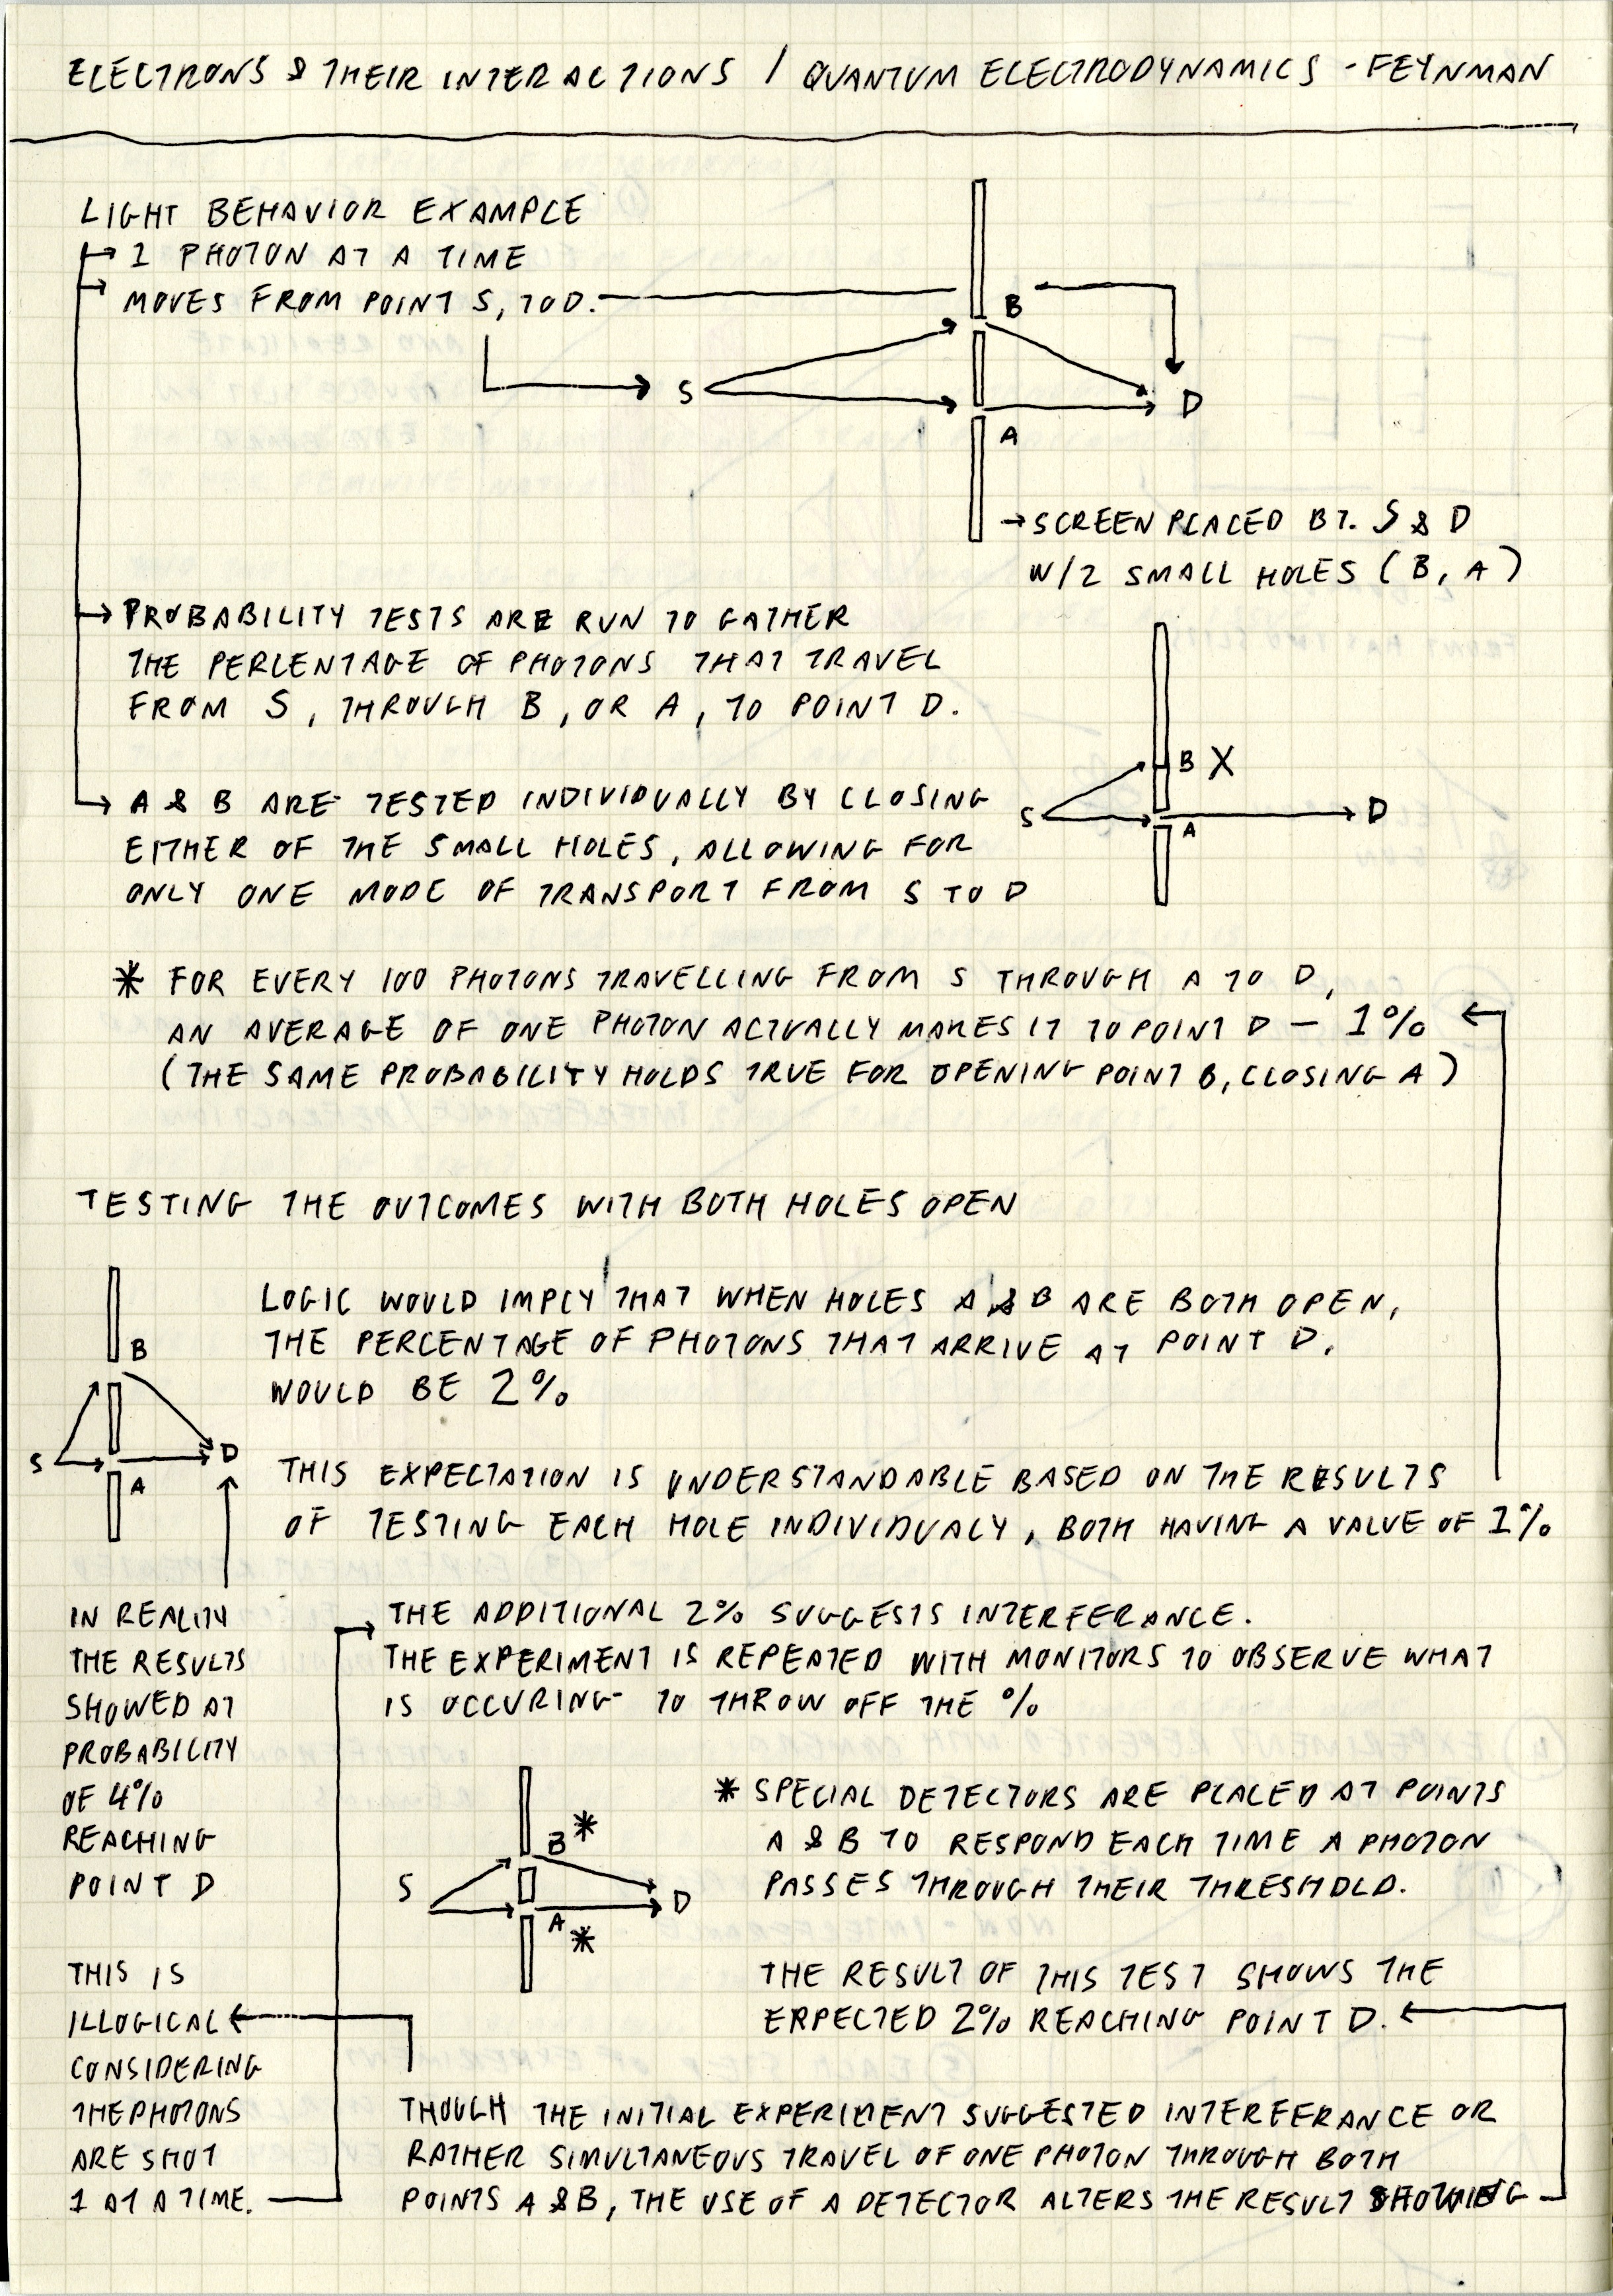 ELECTRONS & THEIR INTERACTIONS / QUANTUM ELECTRODYNAMICS - FEYNMAN
LIGHT BEHAVIOR EXAMPLE
→ 1 PHOTON AT A TIME
→ MOVES FROM POINT S, TO D.
B
S
D
A
→ SCREEN PLACED BT. S & D
W/2 SMALL HOLES (B, A)
→ PROBABILITY TESTS ARE RUN TO GATHER
THE PERCENTAGE OF PHOTONS THAT TRAVEL
FROM S, THROUGH B, OR A, TO POINT D.
B X
S
D
A
→ A & B ARE TESTED INDIVIDUALLY BY CLOSING
EITHER OF THE SMALL HOLES, ALLOWING FOR
ONLY ONE MODE OF TRANSPORT FROM S TO D
* FOR EVERY 100 PHOTONS TRAVELLING FROM S THROUGH A TO D,
AN AVERAGE OF ONE PHOTON ACTUALLY MAKES IT TO POINT D — 1% ←
(THE SAME PROBABILITY HOLDS TRUE FOR OPENING POINT B, CLOSING A)
TESTING THE OUTCOMES WITH BOTH HOLES OPEN
B
S
D
A
LOGIC WOULD IMPLY THAT WHEN HOLES A & B ARE BOTH OPEN,
THE PERCENTAGE OF PHOTONS THAT ARRIVE AT POINT D,
WOULD BE 2%
THIS EXPECTATION IS UNDERSTANDABLE BASED ON THE RESULTS
OF TESTING EACH HOLE INDIVIDUALY, BOTH HAVING A VALUE OF 1%
IN REALITY
THE RESULTS
SHOWED AT
PROBABILITY
OF 4%
REACHING
POINT D
THIS IS
ILLOGICAL ←
CONSIDERING
THE PHOTONS
ARE SHOT
1 AT A TIME.
→ THE ADDITIONAL 2% SUGGESTS INTERFERANCE.
THE EXPERIMENT IS REPEATED WITH MONITORS TO OBSERVE WHAT
IS OCCURING TO THROW OFF THE %
B *
S
D
A *
* SPECIAL DETECTORS ARE PLACED AT POINTS
A & B TO RESPOND EACH TIME A PHOTON
PASSES THROUGH THEIR THRESHOLD.
THE RESULT OF THIS TEST SHOWS THE
EXPECTED 2% REACHING POINT D. ←
THOUGH THE INITIAL EXPERIMENT SUGGESTED INTERFERANCE OR
RATHER SIMULTANEOUS TRAVEL OF ONE PHOTON THROUGH BOTH
POINTS A & B, THE USE OF A DETECTOR ALTERS THE RESULT SHOWING